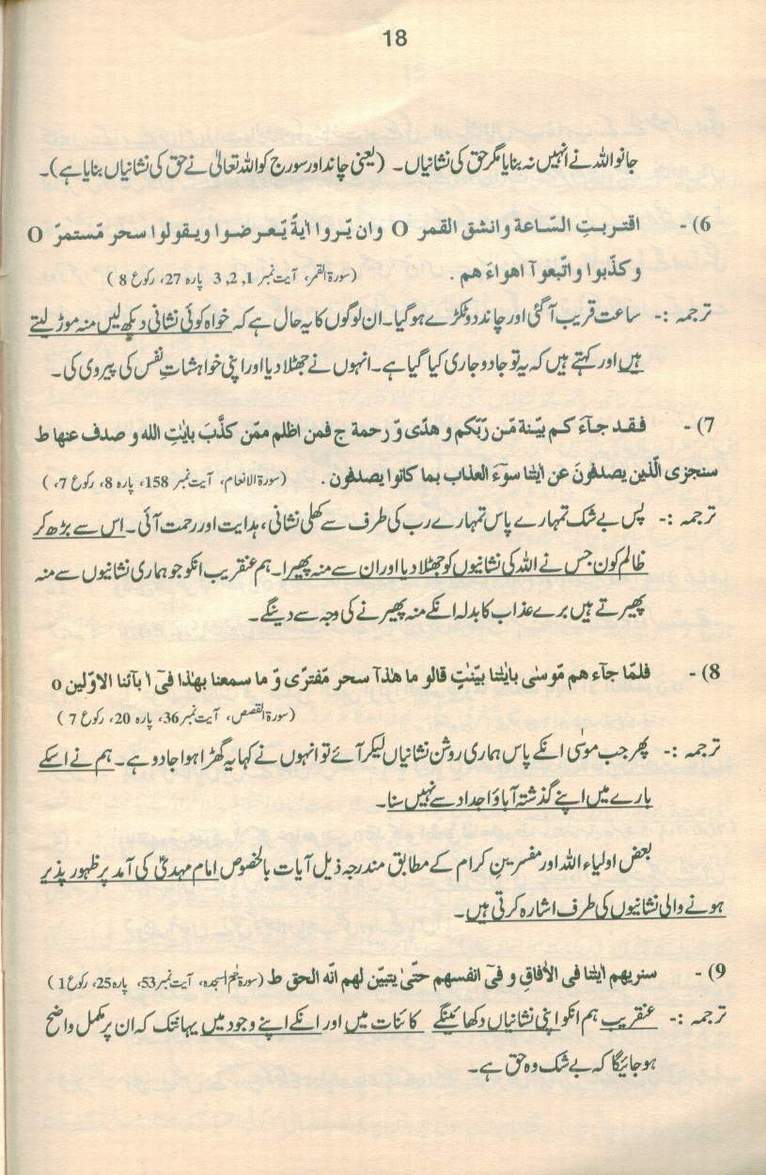 18
جانو اللہ نے انہیں نہ بنایا مگر حق کی نشانیاں۔ (یعنی چاند اور سورج کو اللہ تعالیٰ نے حق کی نشانیاں بنایا ہے)۔
6) - اقتربتِ السّاعة وانشق القمر O وان يّروا اٰيةً يّعرضوا ويقولوا سحر مّستمرّ O
و كذّبوا واتّبعوآ اهواءَ هم . (سورۃ القمر، آیت نمبر 1, 2, 3 پارہ 27، رکوع 8 )
ترجمہ :- ساعت قریب آگئی اور چاند دو ٹکڑے ہو گیا۔ ان لوگوں کا یہ حال ہے کہ خواہ کوئی نشانی دیکھ لیں منہ موڑ لیتے
ہیں اور کہتے ہیں کہ یہ تو جادو جاری کیا گیا ہے۔ انہوں نے جھٹلا دیا اور اپنی خواہشاتِ نفس کی پیروی کی۔
7) - فقد جآءَ كم بيّنة مّن رّبّكم و هدًى وّ رحمة ج فمن اظلم ممّن كذَّبَ باٰيٰتِ الله و صدف عنها ط
سنجزى الّذين يصدفونَ عن اٰيٰتنا سوٓءَ العذاب بما كانوا يصدفون . (سورۃ الانعام، آیت نمبر 158، پارہ 8، رکوع 7، )
ترجمہ :- پس بے شک تمہارے پاس تمہارے رب کی طرف سے کھلی نشانی، ہدایت اور رحمت آئی۔ اس سے بڑھ کر
ظالم کون جس نے اللہ کی نشانیوں کو جھٹلا دیا اور ان سے منہ پھیرا۔ ہم عنقریب انکو جو ہماری نشانیوں سے منہ
پھیرتے ہیں برے عذاب کا بدلہ انکے منہ پھیرنے کی وجہ سے دینگے۔
8) - فلمّا جآء هم مّوسٰى باٰيٰتنا بيّنٰتٍ قالو ما هٰذآ سحر مفترًى وّ ما سمعنا بهٰذا فىٓ ابآئنا الاوّلين o
(سورۃ القصص، آیت نمبر 36، پارہ 20، رکوع 7 )
ترجمہ :- پھر جب موسٰی انکے پاس ہماری روشن نشانیاں لیکر آئے تو انہوں نے کہا یہ گھڑا ہوا جادو ہے۔ ہم نے اسکے
بارے میں اپنے گذشتہ آباؤ اجداد سے نہیں سنا۔
بعض اولیاء اللہ اور مفسرینِ کرام کے مطابق مندرجہ ذیل آیات بالخصوص امام مہدیؑ کی آمد پر ظہور پذیر
ہونے والی نشانیوں کی طرف اشارہ کرتی ہیں۔
9) - سنريهم اٰيٰتنا فى الاٰفاقِ و فىٓ انفسهم حتّىٰ يتبيّن لهم انّه الحق ط (سورۃ حٰم السجدہ، آیت نمبر 53، پارہ 25، رکوع 1 )
ترجمہ :- عنقریب ہم انکو اپنی نشانیاں دکھائینگے کائنات میں اور انکے اپنے وجود میں یہانتک کہ ان پر مکمل واضح
ہو جائیگا کہ بے شک وہ حق ہے۔